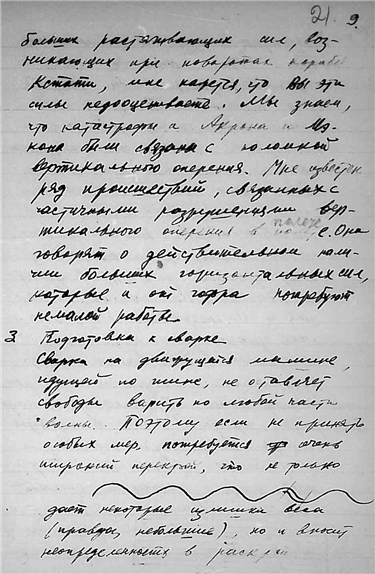 21. 9.
больших растягивающих сил, воз-
никающих при поворотах корабля
Кстати, мне кажется, что Вы эти
силы недооцениваете. Мы знаем,
что катастрофы и Акрона и Мэ-
кона были связаны с поломкой
вертикального оперения. Мне известен
ряд происшествий, связанных с
частичными разрушениями вер-
тикального оперения в полете. Она
говорят о действительном нали-
чии больших горизонтальных сил,
которые и от гофра потребуют
немалой работы.
3 Подготовка к сварке
Сварка на движущейся машине,
идущей по шине, не оставляет
свободы варить по любой части
волны. Поэтому если не принять
особых мер, потребуется очень
широкий перекрой, что не только
дает некоторые излишки веса
(правда, небольшие), но и вносит
неопределенность в раскрой